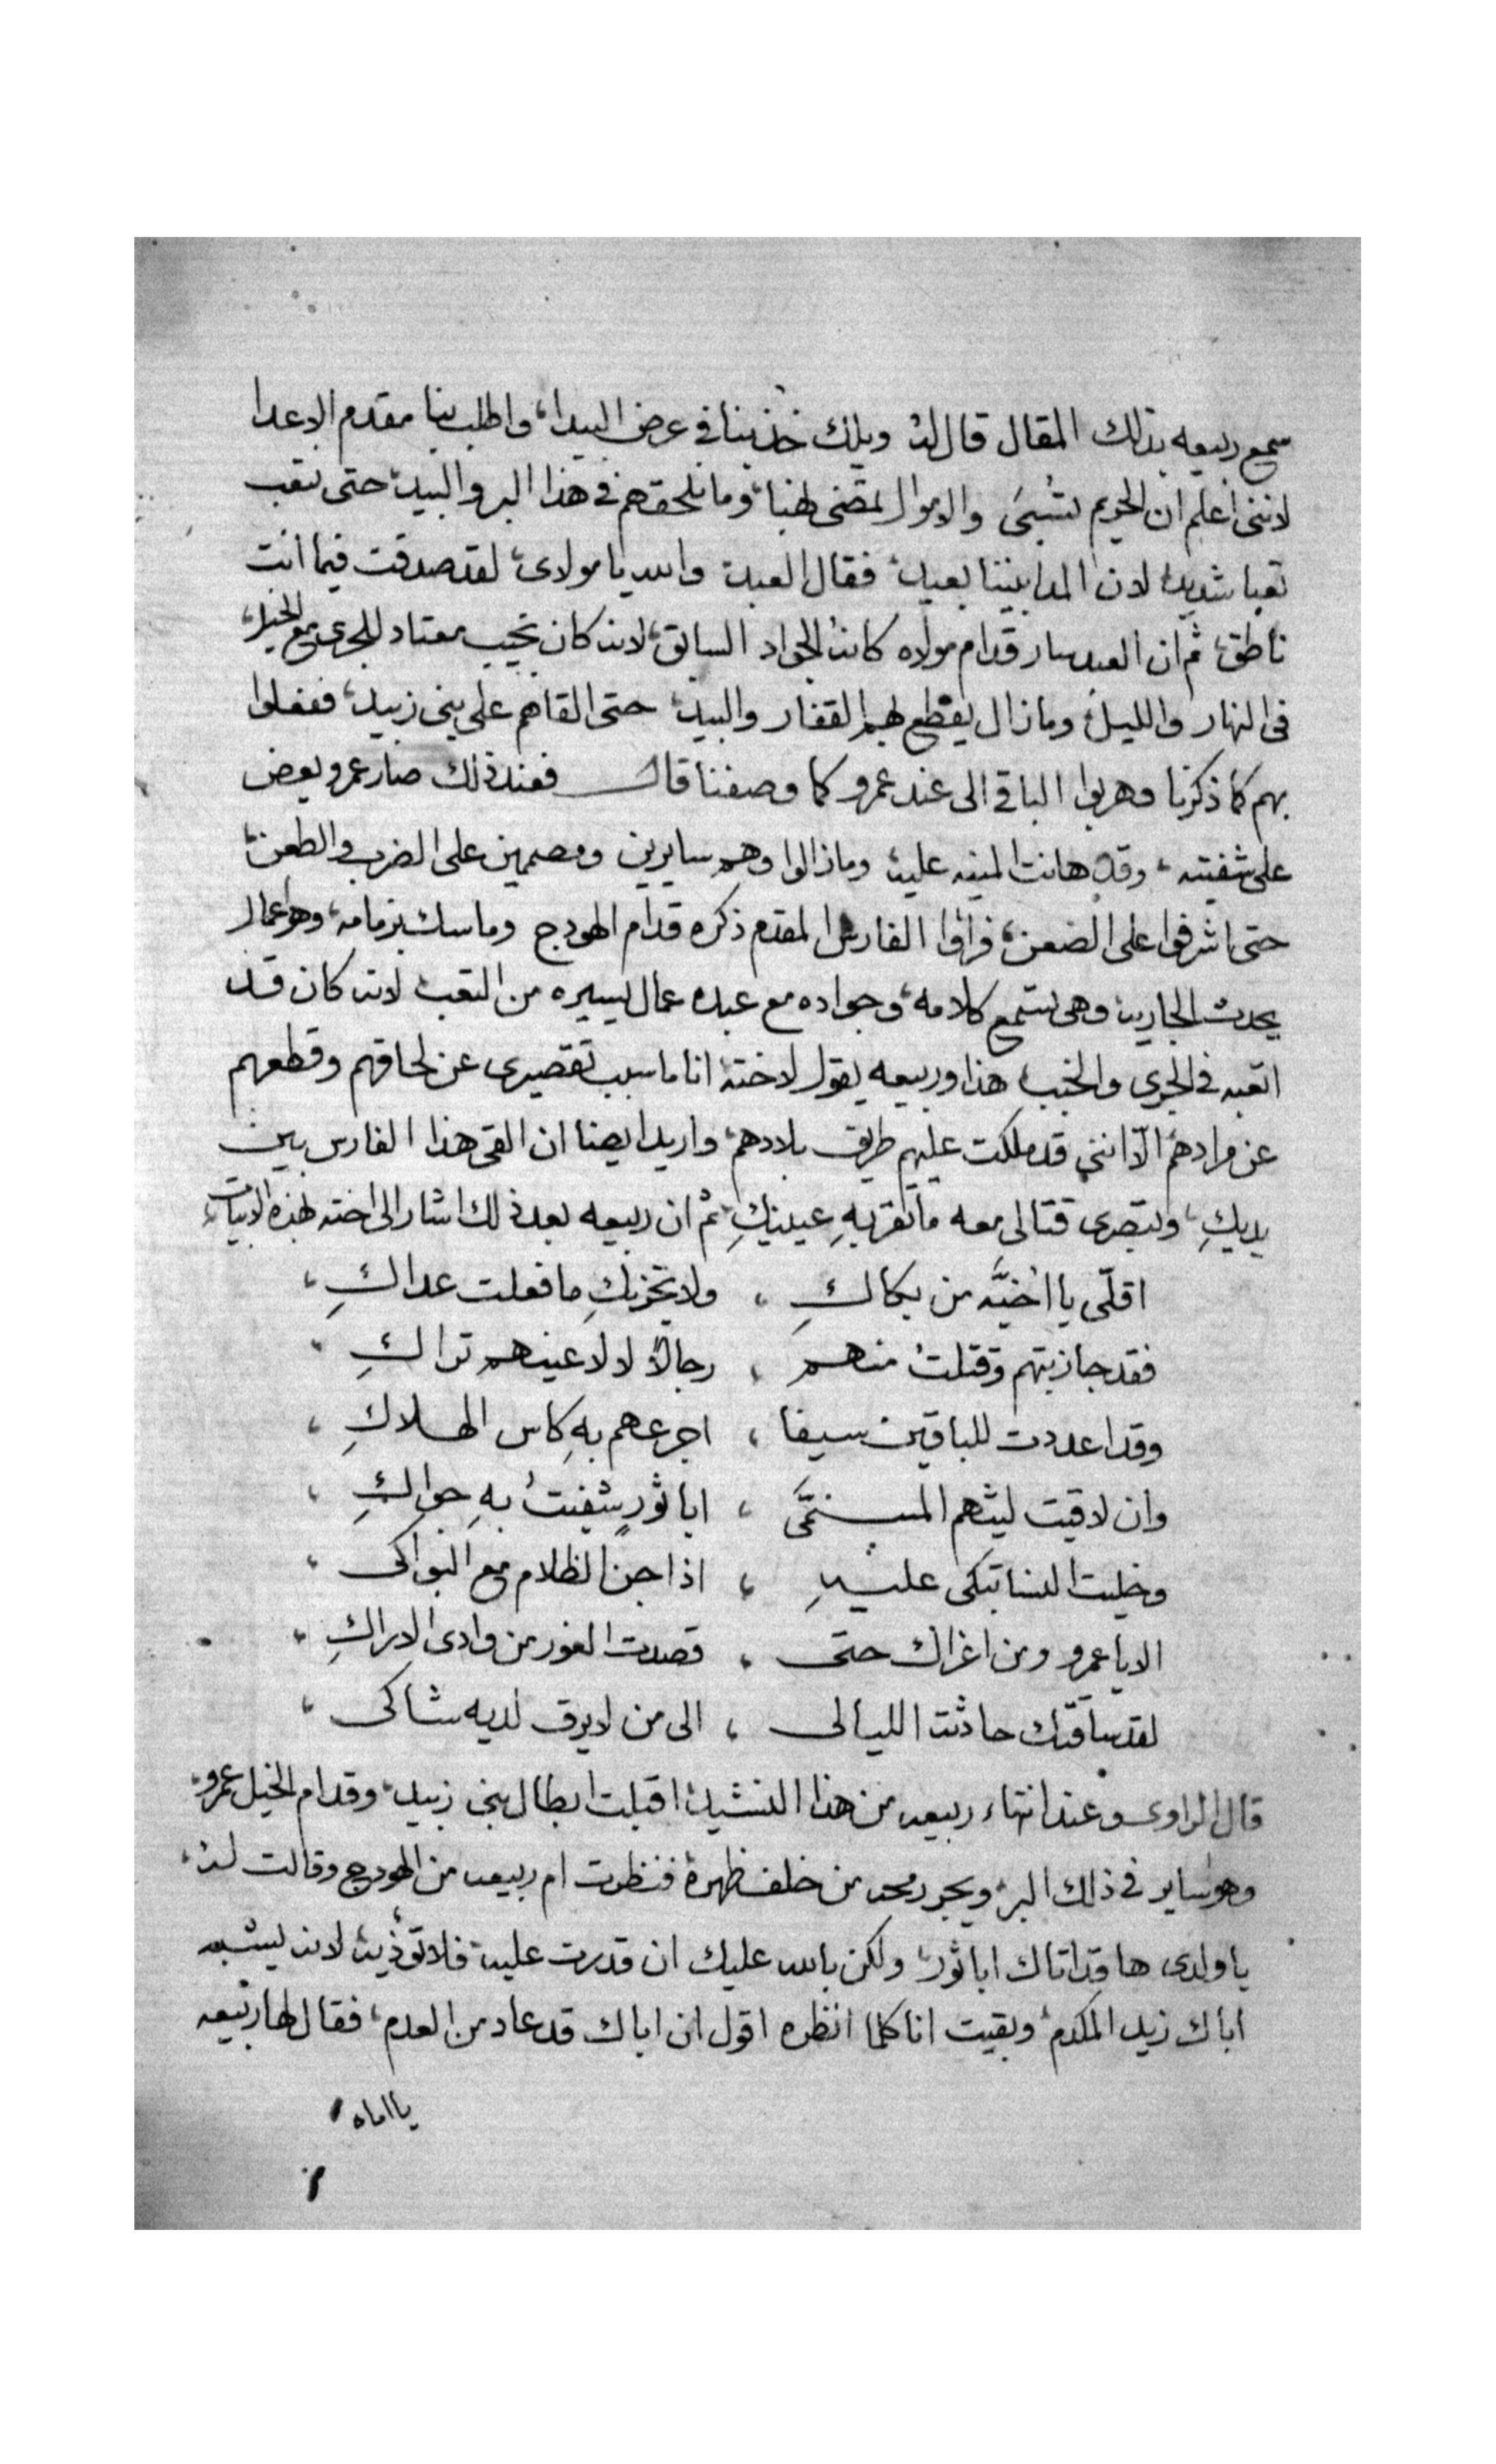 سمع ربيعه بذلك المقال قال له ويلك خذ بنا في عرض البيدا، واطلب بنا مقدم الاعدا
لانني اعلم ان الحريم تسبى والاموال تمضى نهبا، وما نلحقهم في هذا البر والبيد، حتى نتعب
تعبا شديد لان المدا بيننا بعيد، فقال العبد والله يا مولاى، لقد صدقت فيما انت
ناطق، ثم ان العبد سار قدام مولاه كانه الجواد السابق، لانه كان نجيب معتاد للجرى مع الخيل،
فى النهار والليل، وما زال يقطع بهم القفار والبيد، حتى القاهم على بنى زبيد، ففعلوا
بهم كما ذكرنا وهربوا الباقى الى عند عمرو كما وصفنا قال فعند ذلك صار عمرو يعض
على شفيته، وقد هانت المنيه عليه، وما زالوا وهم سايرين ومصممين على الضرب والطعن،
حتى اشرفوا على الضعن، فراوا الفارس المقدم ذكره قدام الهودج وماسك بزمامه، وهو عمال
يحدث الجاريه وهى تستمع كلامه، وجواده مع عبده عمال يسيره من التعب لانه كان قد
اتعبه في الجرى والخبب هذا وربيعه يقول لاخته انا ما سبب تقصيرى عن لحاقهم وقطعهم
عن مرادهم الّا انني قد ملكت عليهم طريق بلادهم، واريد ايضا ان القى هذا الفارس بين
يديكِ، وتبصرى قتالى معه ما تقر بهِ عينيكِ، ثم ان ربيعه بعد ذلك اشار الى اخته بهذه الابيات،
اقلّى يا اخيَّه من بكاكِ ، ولا يحزنكِ ما فعلت عداكِ ،
فقد جازيتهم وقتلت منهم ، رجالاً لا لاعينهم تراكِ ،
وقد اعددت للباقين سيفا ، اجرعهم بهِ كاس الهلاكِ ،
وان لاقيت ليثهم المسمَّى ، ابا ثورٍ شفيتُ بهِ جواكِ ،
وخليت النسا تبكى عليهِ ، اذا جن الظلام مع البواكى ،
الا يا عمرو ومن اغراك حتى ، قصدت الغور من وادى الاراكِ ،
لقد ساقتك حادثت الليالى ، الى من لا يرق لديه شاكى ،
قال الراوى وعند انتهاء ربيعه من هذا النشيد، اقبلت ابطال بنى زبيد، وقدام الخيل عمرو،
وهو ساير في ذلك البر، ويجر رمحه من خلف ظهره فنظرت ام ربيعه من الهودج وقالت له،
يا ولدى ها قد اتاك ابا ثور، ولكن بالله عليك ان قدرت عليه فلا تؤذيه، لانه يشبه
اباك زيد المكدم، وبقيت انا كلما انظره اقول ان اباك قد عاد من العدم، فقال لها ربيعه
يا اماه